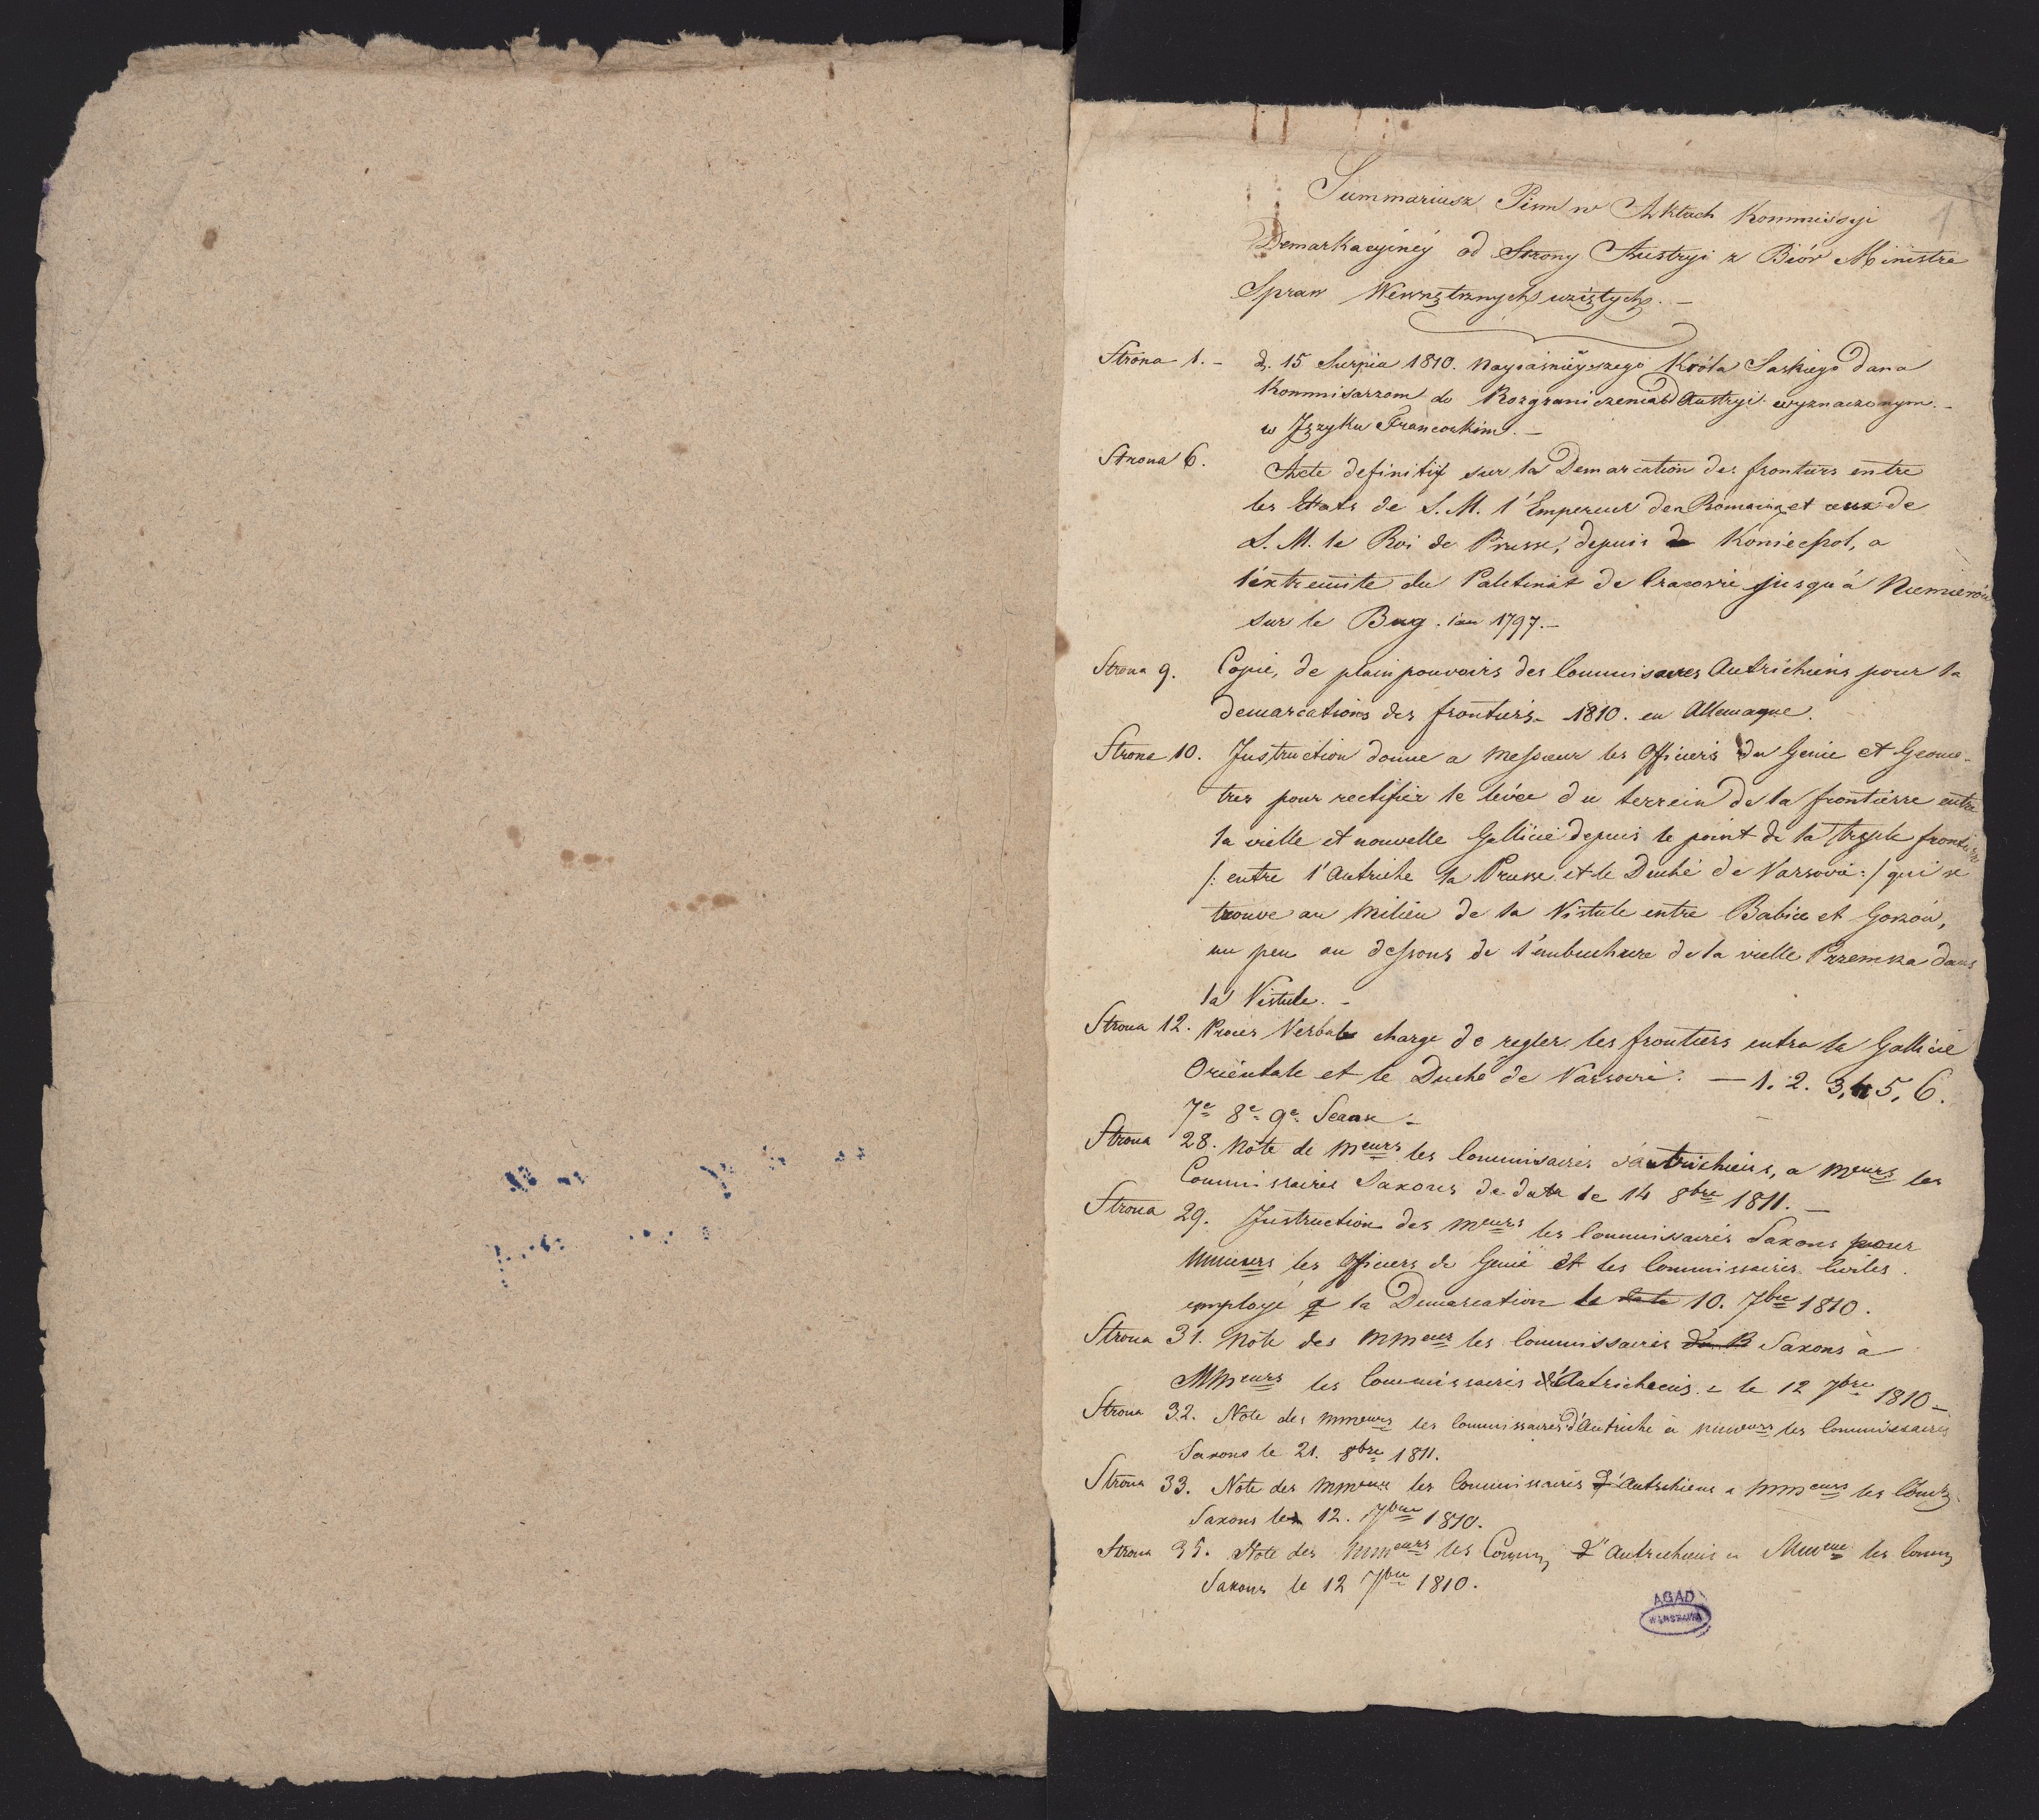 1
Summariusz Pism w Aktach Kommissyi
Demarkacyiney od Strony Austryi z Biór Ministra
Spraw Wewnętrznych wziętych. –
Strona 1. – d. 15 Sierpia 1810. Nayiaśnieyszego Króla Saskiego dana
Kommisarzom do Rozgraniczenia od Austryi wyznaczonym. –
w Języku Francuskim. –
Strona 6. Acte definitif sur la Demarcation des frontiers entre
les Etats de S. M. l'Empereur des Romains et ceux de
S. M. le Roi de Prusse, depuis Koniecpol, a
l'extremite du Palatinat de Cracovie jusqu'á Niemirów
sur le Bug. 1797. –
Strona 9. Copie, de plein pouvoirs des Commisaires Autrichiens pour la
demarcations des frontiers – 1810. en Allemagne.
Strona 10. Instruction donne a Messieur les Officiers du Genie et Geome-
tres pour rectifier le levée du terrein de la frontierre entre
la vielle et nouvelle Gallicie depuis le point de la triple frontierre
/: entre l'Autriche la Prusse et le Duché de Varsovie :/ qui se
trouve au milieu de la Vistule entre Babice et Gorzów,
un peu au dessous de l'embuchure de la vielle Przemsza dans
la Vistule. –
Strona 12. Proces Verbale charge de regler les frontiers entre la Gallicie
Orientale et le Duche de Varsovie. – 1. 2. 3, 4 5, 6.
7e 8e 9e Seanc –
Strona 28. Note de Meurs les Commisaires d'autrichiens, a Meurs les
Commissaires Saxons de date le 14 8bre 1811. –
Strona 29. Instruction des Meurs les Commissaires Saxons pour
Mmeurs les Officiers de Genie et les Commissaires Civiles
employe a la Demarcation le date 10. 7bre 1810.
Strona 31. Note des Mmeur les Commissaires de B Saxons à
MMeurs les Commissaires d'Autrichiens – le 12 7bre 1810 –
Strona 32. Note des Mmeurs les Commissaires d'Autriche à Mmeurs les Commissaires
Saxons le 21. 8bre 1811.
Strona 33. Note des Mmeurs les Commissaires d'Autrichiens a Mmeurs les Comm
Saxons le 12. 7bre 1810.
Strona 35. Note des Mmeurs les Comm d'Autrichiens a Mmeur les Comm
Saxons le 12 7bre 1810.
AGAD
WARSZAWA